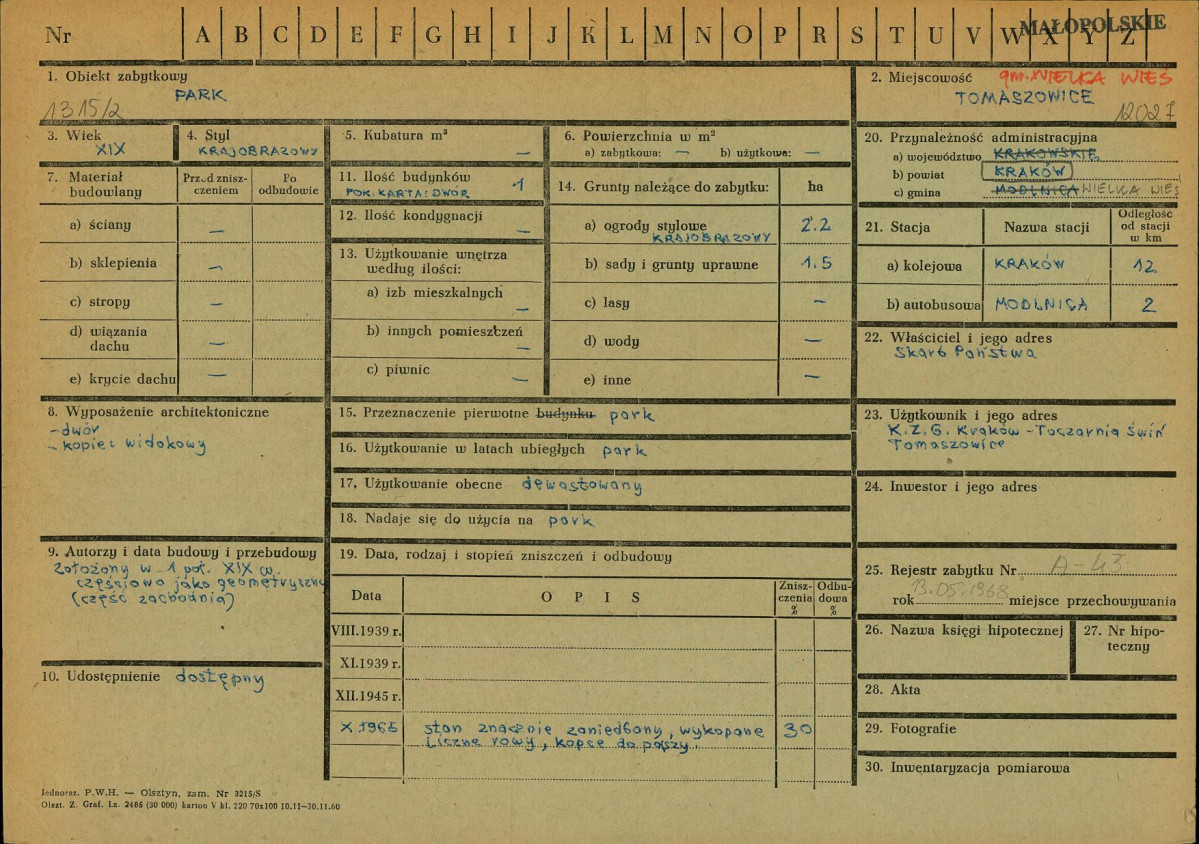 Nr A B C D E F G H I J K L M N O P R S T U V W X Y Z
MAŁOPOLSKIE
1. Obiekt zabytkowy
PARK
1315/2
2. Miejscowość gm. WIELKA WIEŚ
TOMASZOWICE
12027
3. Wiek
XIX
4. Styl
KRAJOBRAZOWY
5. Kubatura m³
—
6. Powierzchnia w m²
a) zabytkowa: — b) użytkowa: —
7. Materiał budowlany
Przed zniszczeniem
Po odbudowie
a) ściany —
b) sklepienia —
c) stropy —
d) wiązania dachu —
e) krycie dachu —
8. Wyposażenie architektoniczne
- dwór
- kopiec widokowy
9. Autorzy i data budowy i przebudowy
założony w 1 poł. XIX w.
częściowo jako geometryczny
(część zachodnia)
10. Udostępnienie dostępny
11. Ilość budynków 1
POK. KARTA: DWÓR
12. Ilość kondygnacji
—
13. Użytkowanie wnętrza
według ilości:
a) izb mieszkalnych
—
b) innych pomieszczeń
—
c) piwnic
—
14. Grunty należące do zabytku: ha
a) ogrody stylowe 2.2
KRAJOBRAZOWY
b) sady i grunty uprawne 1.5
c) lasy —
d) wody —
e) inne —
15. Przeznaczenie pierwotne budynku park
16. Użytkowanie w latach ubiegłych park
17. Użytkowanie obecne dewastowany
18. Nadaje się do użycia na park
19. Data, rodzaj i stopień zniszczeń i odbudowy
Data OPIS Zniszczenia % Odbudowa %
VIII.1939 r.
XI.1939 r.
XII.1945 r.
X 1965 stan znacznie zaniedbany, wykopane 30
liczne rowy, kopce do paszy.
20. Przynależność administracyjna
a) województwo KRAKOWSKIE
b) powiat KRAKÓW
c) gmina MODLNICA WIELKA WIEŚ
21. Stacja Nazwa stacji Odległość od stacji w km
a) kolejowa KRAKÓW 12
b) autobusowa MODLNICA 2
22. Właściciel i jego adres
Skarb Państwa
23. Użytkownik i jego adres
K.Z.G. Kraków - Tuczarnia Świń
Tomaszowice
24. Inwestor i jego adres
25. Rejestr zabytku Nr A-43
rok 13.05.1968 miejsce przechowywania
26. Nazwa księgi hipotecznej
27. Nr hipoteczny
28. Akta
29. Fotografie
30. Inwentaryzacja pomiarowa
Jednoraz. P.W.H. — Olsztyn, zam. Nr 3215/S
Olszt. Z. Graf. Lz. 2485 (30 000) karton V kl. 220 70x100 10.11—30.11.60